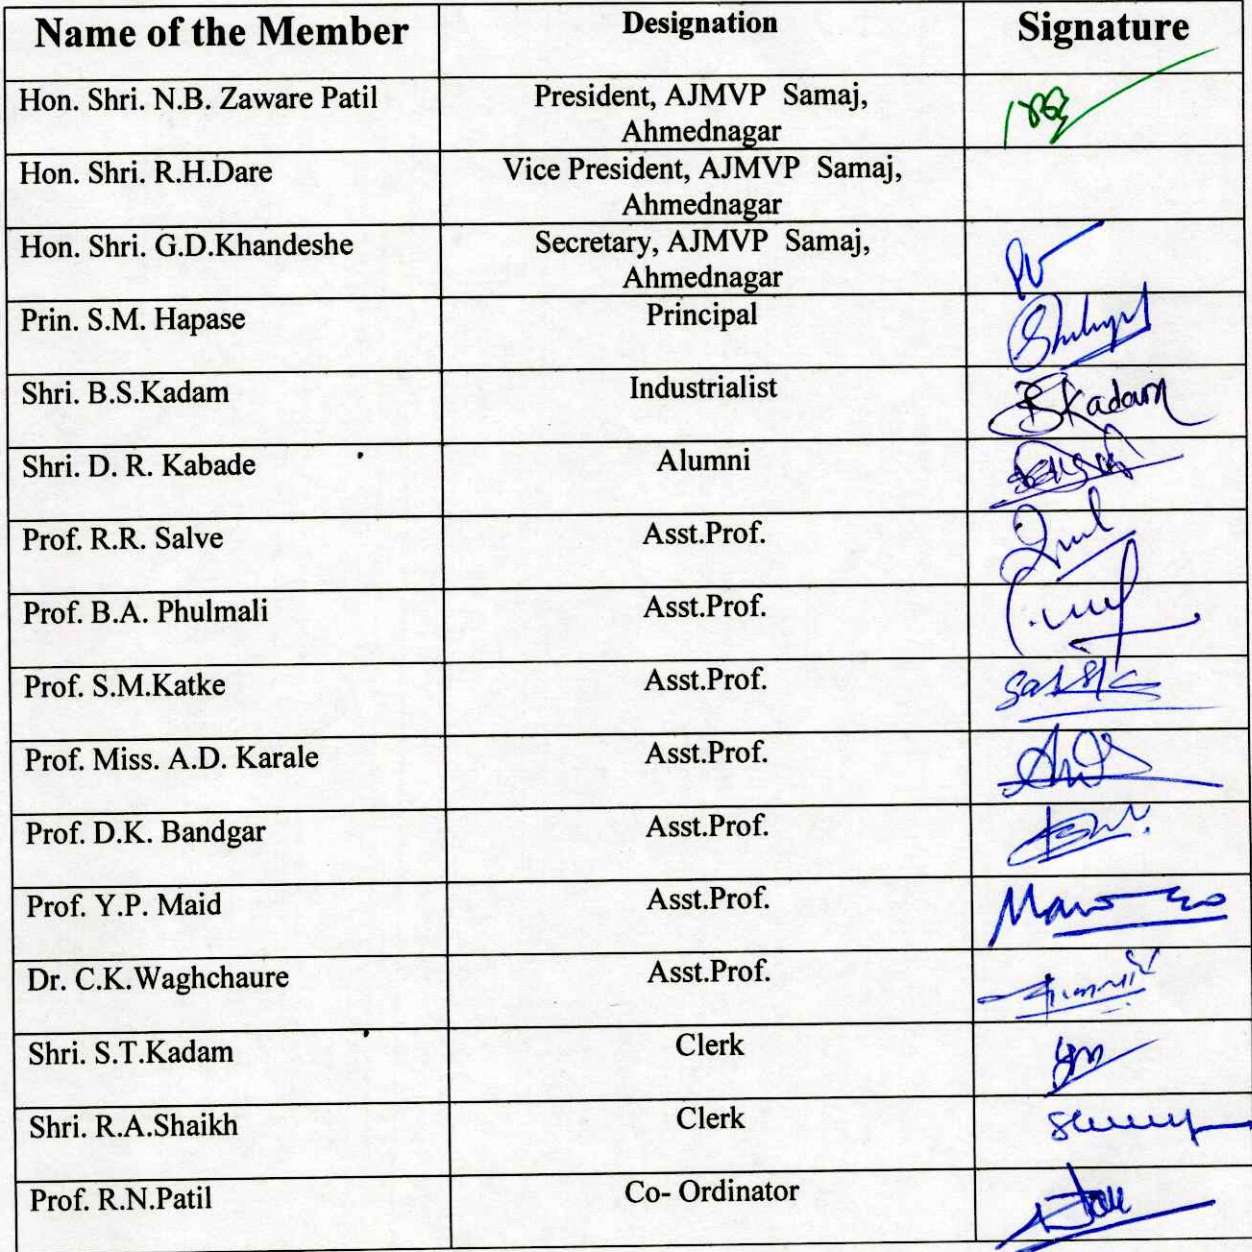 Name of the Member Designation Signature
Hon. Shri. N.B. Zaware Patil President, AJMVP Samaj,
Ahmednagar
Hon. Shri. R.H.Dare Vice President, AJMVP Samaj,
Ahmednagar
Hon. Shri. G.D.Khandeshe Secretary, AJMVP Samaj,
Ahmednagar
Prin. S.M. Hapase Principal
Shri. B.S.Kadam Industrialist BKadam
Shri. D. R. Kabade Alumni
Prof. R.R. Salve Asst.Prof.
Prof. B.A. Phulmali Asst.Prof.
Prof. S.M.Katke Asst.Prof.
Prof. Miss. A.D. Karale Asst.Prof.
Prof. D.K. Bandgar Asst.Prof.
Prof. Y.P. Maid Asst.Prof.
Dr. C.K.Waghchaure Asst.Prof.
Shri. S.T.Kadam Clerk
Shri. R.A.Shaikh Clerk
Prof. R.N.Patil Co- Ordinator